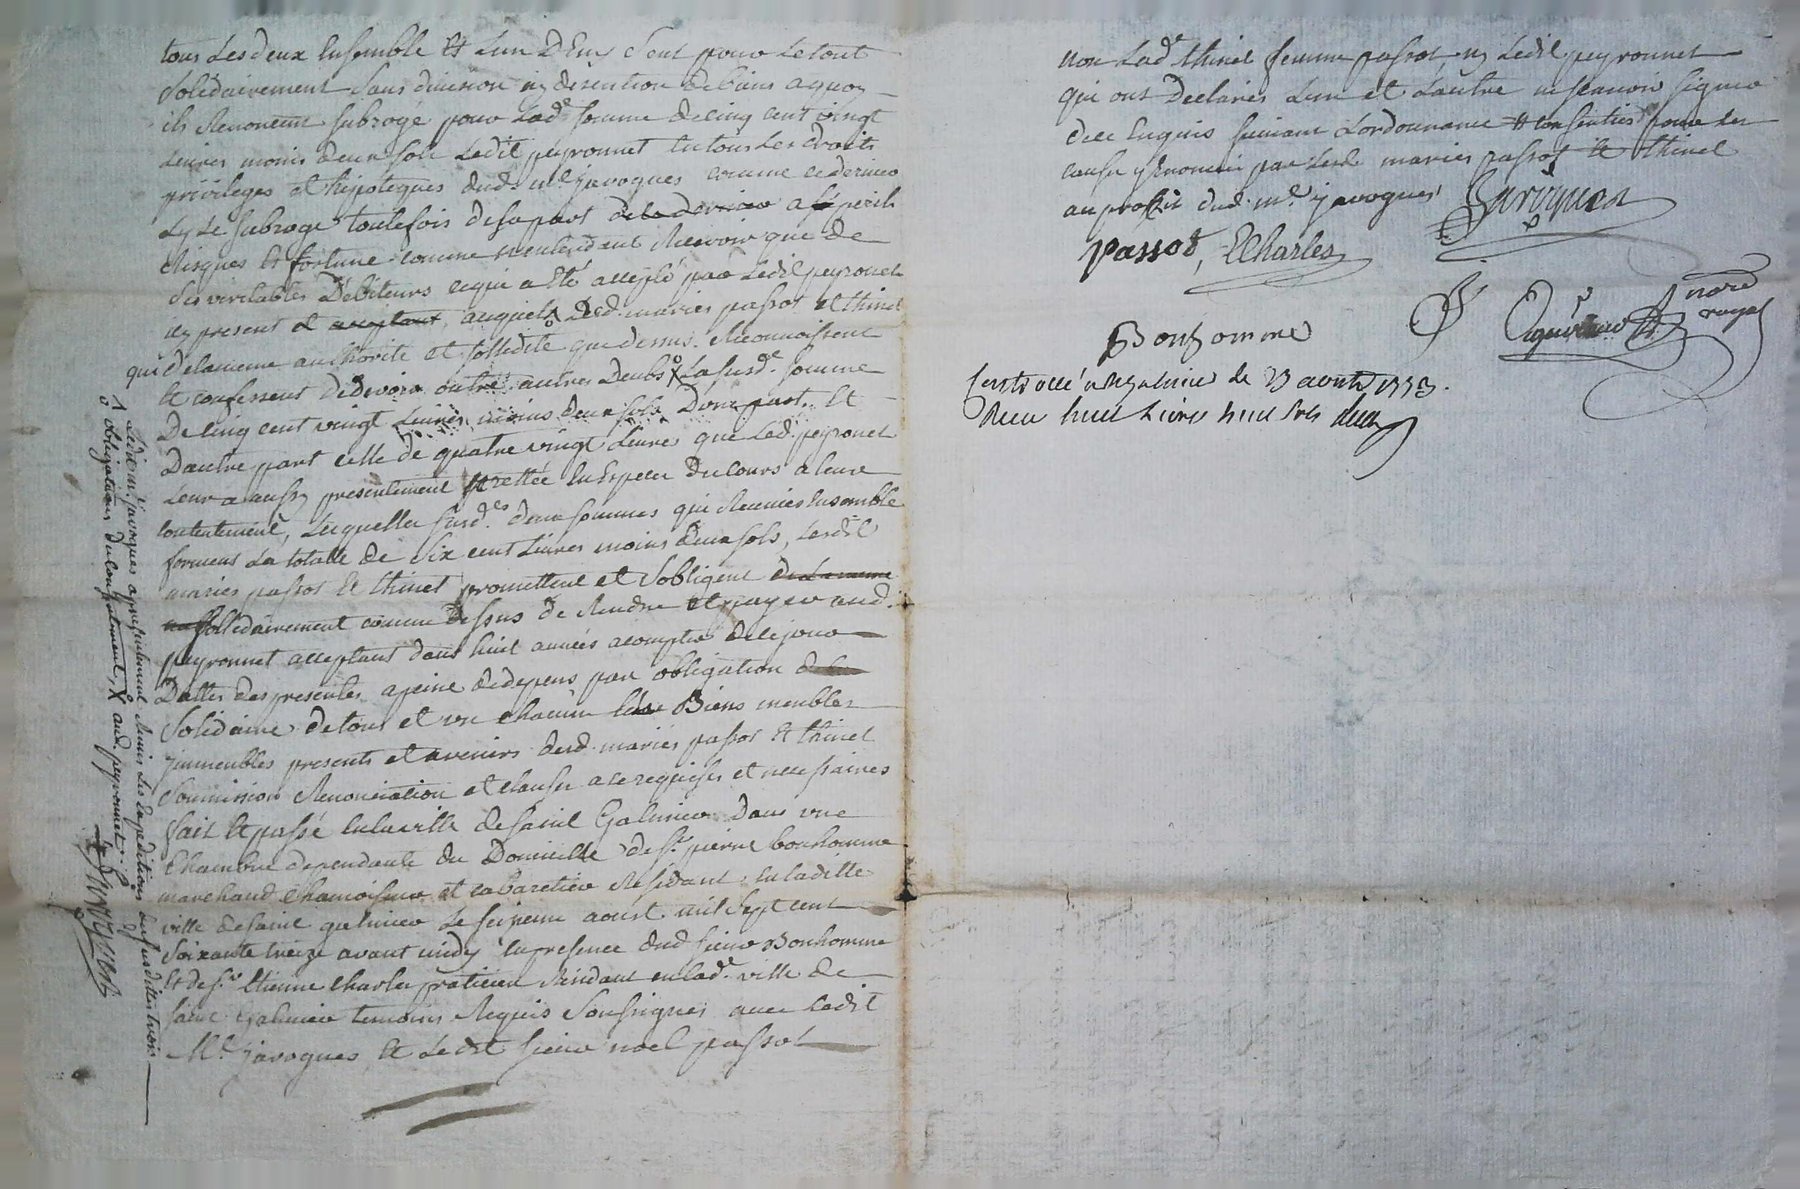 tous Les deux Ensemble et Lun D'Eux seul pour Le tout
Solidairement Sans division ny discution de biens a quoy
ils Renoncent subrogé pour Lad.e somme de cinq cent vingt
Livres moins deux sols Ledit peyronnet en tous Les droits
privileges et hipoteques dud. m.e javogues comme ce dernier
Ly Le subroge toutefois de sa part de ce dernier a ses perils
Risques et fortune comme nentendant Recevoir que de
ses veritables Debiteurs ce qui a Eté accepté par Ledit peyronnet
icy present et acceptant, auquel Lesd. maries passot et thinet
qui de la meme authorité et sollidité que dessus Reconnoissent
et confessent de devoir outre autres Deubs La susd.e somme
De cinq cent vingt Livres moins deux sols D'une part, Et
Dautre part celle de quatre vingt Livre que Led. peyronnet
Leur a aussy presentement prettée En Espece du cours a leur
contentement, Lesquelles susd.es deux sommes qui Reunies Ensemble
forment La totalle de six cent Livres moins deux sols, Lesdit
maries passot Et thinet promettent et sobligent de La meme
sollidairement comme dessus de Rendre et payer aud.
peyronnet acceptant dans huit années a compter de ce jour
Datte des presentes a peine de depens par obligation
Solidaire de tous et un chacun leur Biens meubles
jmmeubles presents et avenirs desd. maries passot Et thinet
Soumission Renonciation et clauses a ce requises et necessaires
fait Et passé En la ville de saint Galmier Dans une
Chambre dependante du Domicille de S.r pierre bonhomme
marchand Chamoiseur et cabaretier Residant en laditte
ville de saint galmier Le seizieme aoust mil sept cent
Soixante treize avant midy En presence dud. sieur Bonhomme
Et de S.r Etienne Charles praticien Residant en lad.e ville de
Saint Galmier temoins Requis Soussignes avec Ledit
M.e javogues, et Ledit sieur noel passot
Ledit m.e javogues a presentement Remis Les Expeditions des susdittes trois
obligations du contentement, X aud. peyronnet.
Javogues
non Lad.e thinet femme passot, ny Ledit peyronnet
qui ont Declarés Lun et Lautre ne scavoir signer
de ce Enquis suivant Lordonnance Et consenties pour les
causes y Enoncées par Lesd. maries passot Et thinet
au profit dud. m.e javogues Javogues
passot, ECharles
Bonhomme
nore royal
Controllé a St galmier le 23 aoust 1773.
Reçu huit Livres huit sols